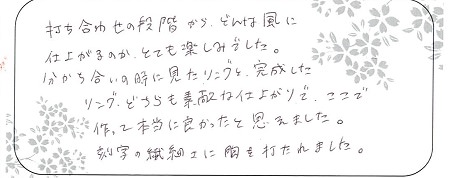 打ち合わせの段階から、どんな風に
仕上がるのか、とても楽しみでした。
分かち合いの時に見たリングと、完成した
リング、どちらも素敵な仕上がりで、ここで
作って本当に良かったと思えました。
刻字の繊細さに胸を打たれました。